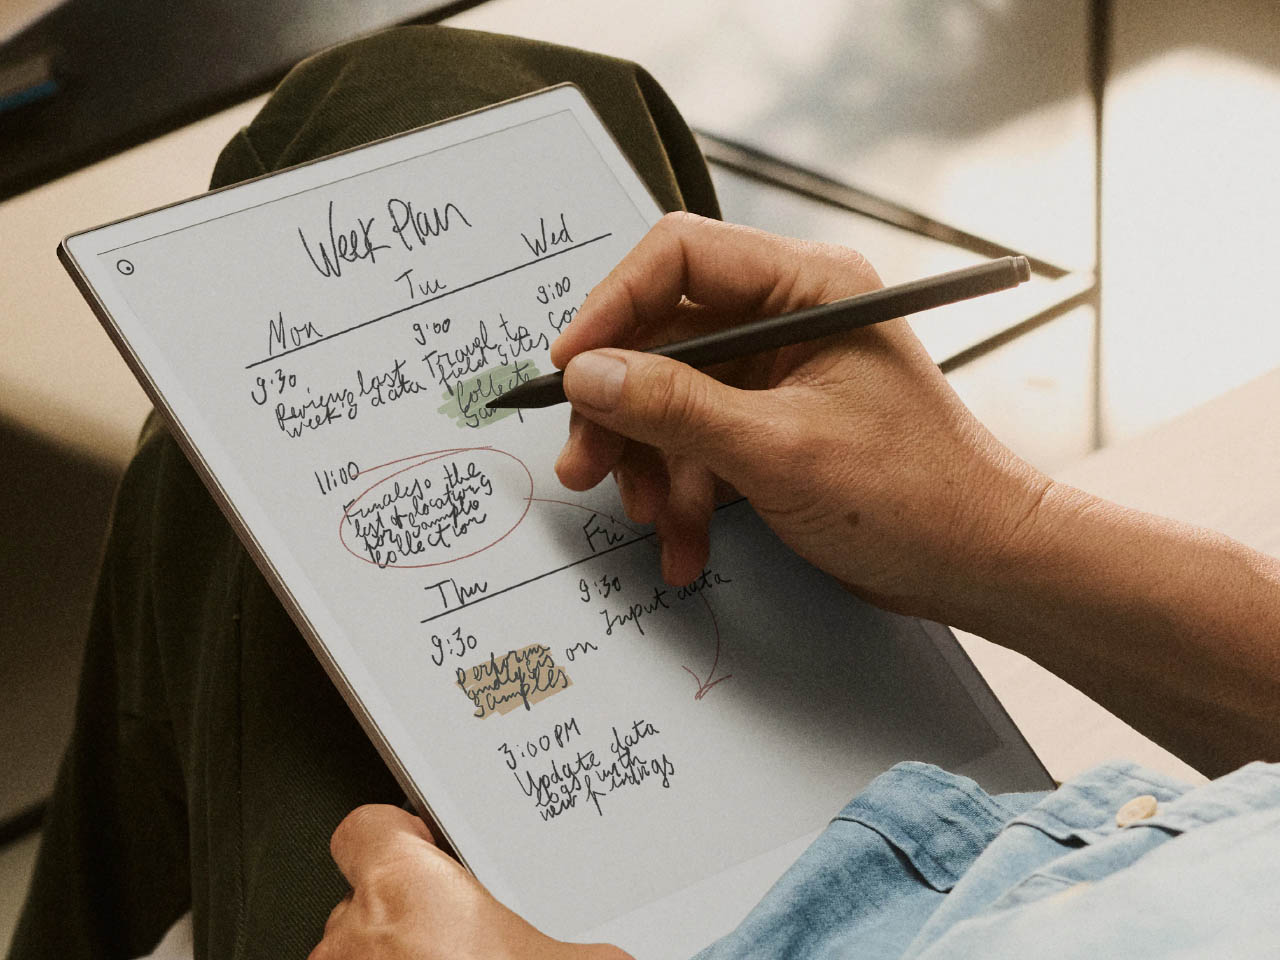 Week Plan
Mon
Tue
Wed
9:30
Review last
week's data
11:00
Finalyse the
list of locations
for sample
collection
9:00
Travel to
field sites
Collect
9:00
Thu
9:30
Perform
analysis on
samples
3:00 PM
Update data
logs with
new findings
Fri
9:30
Input data